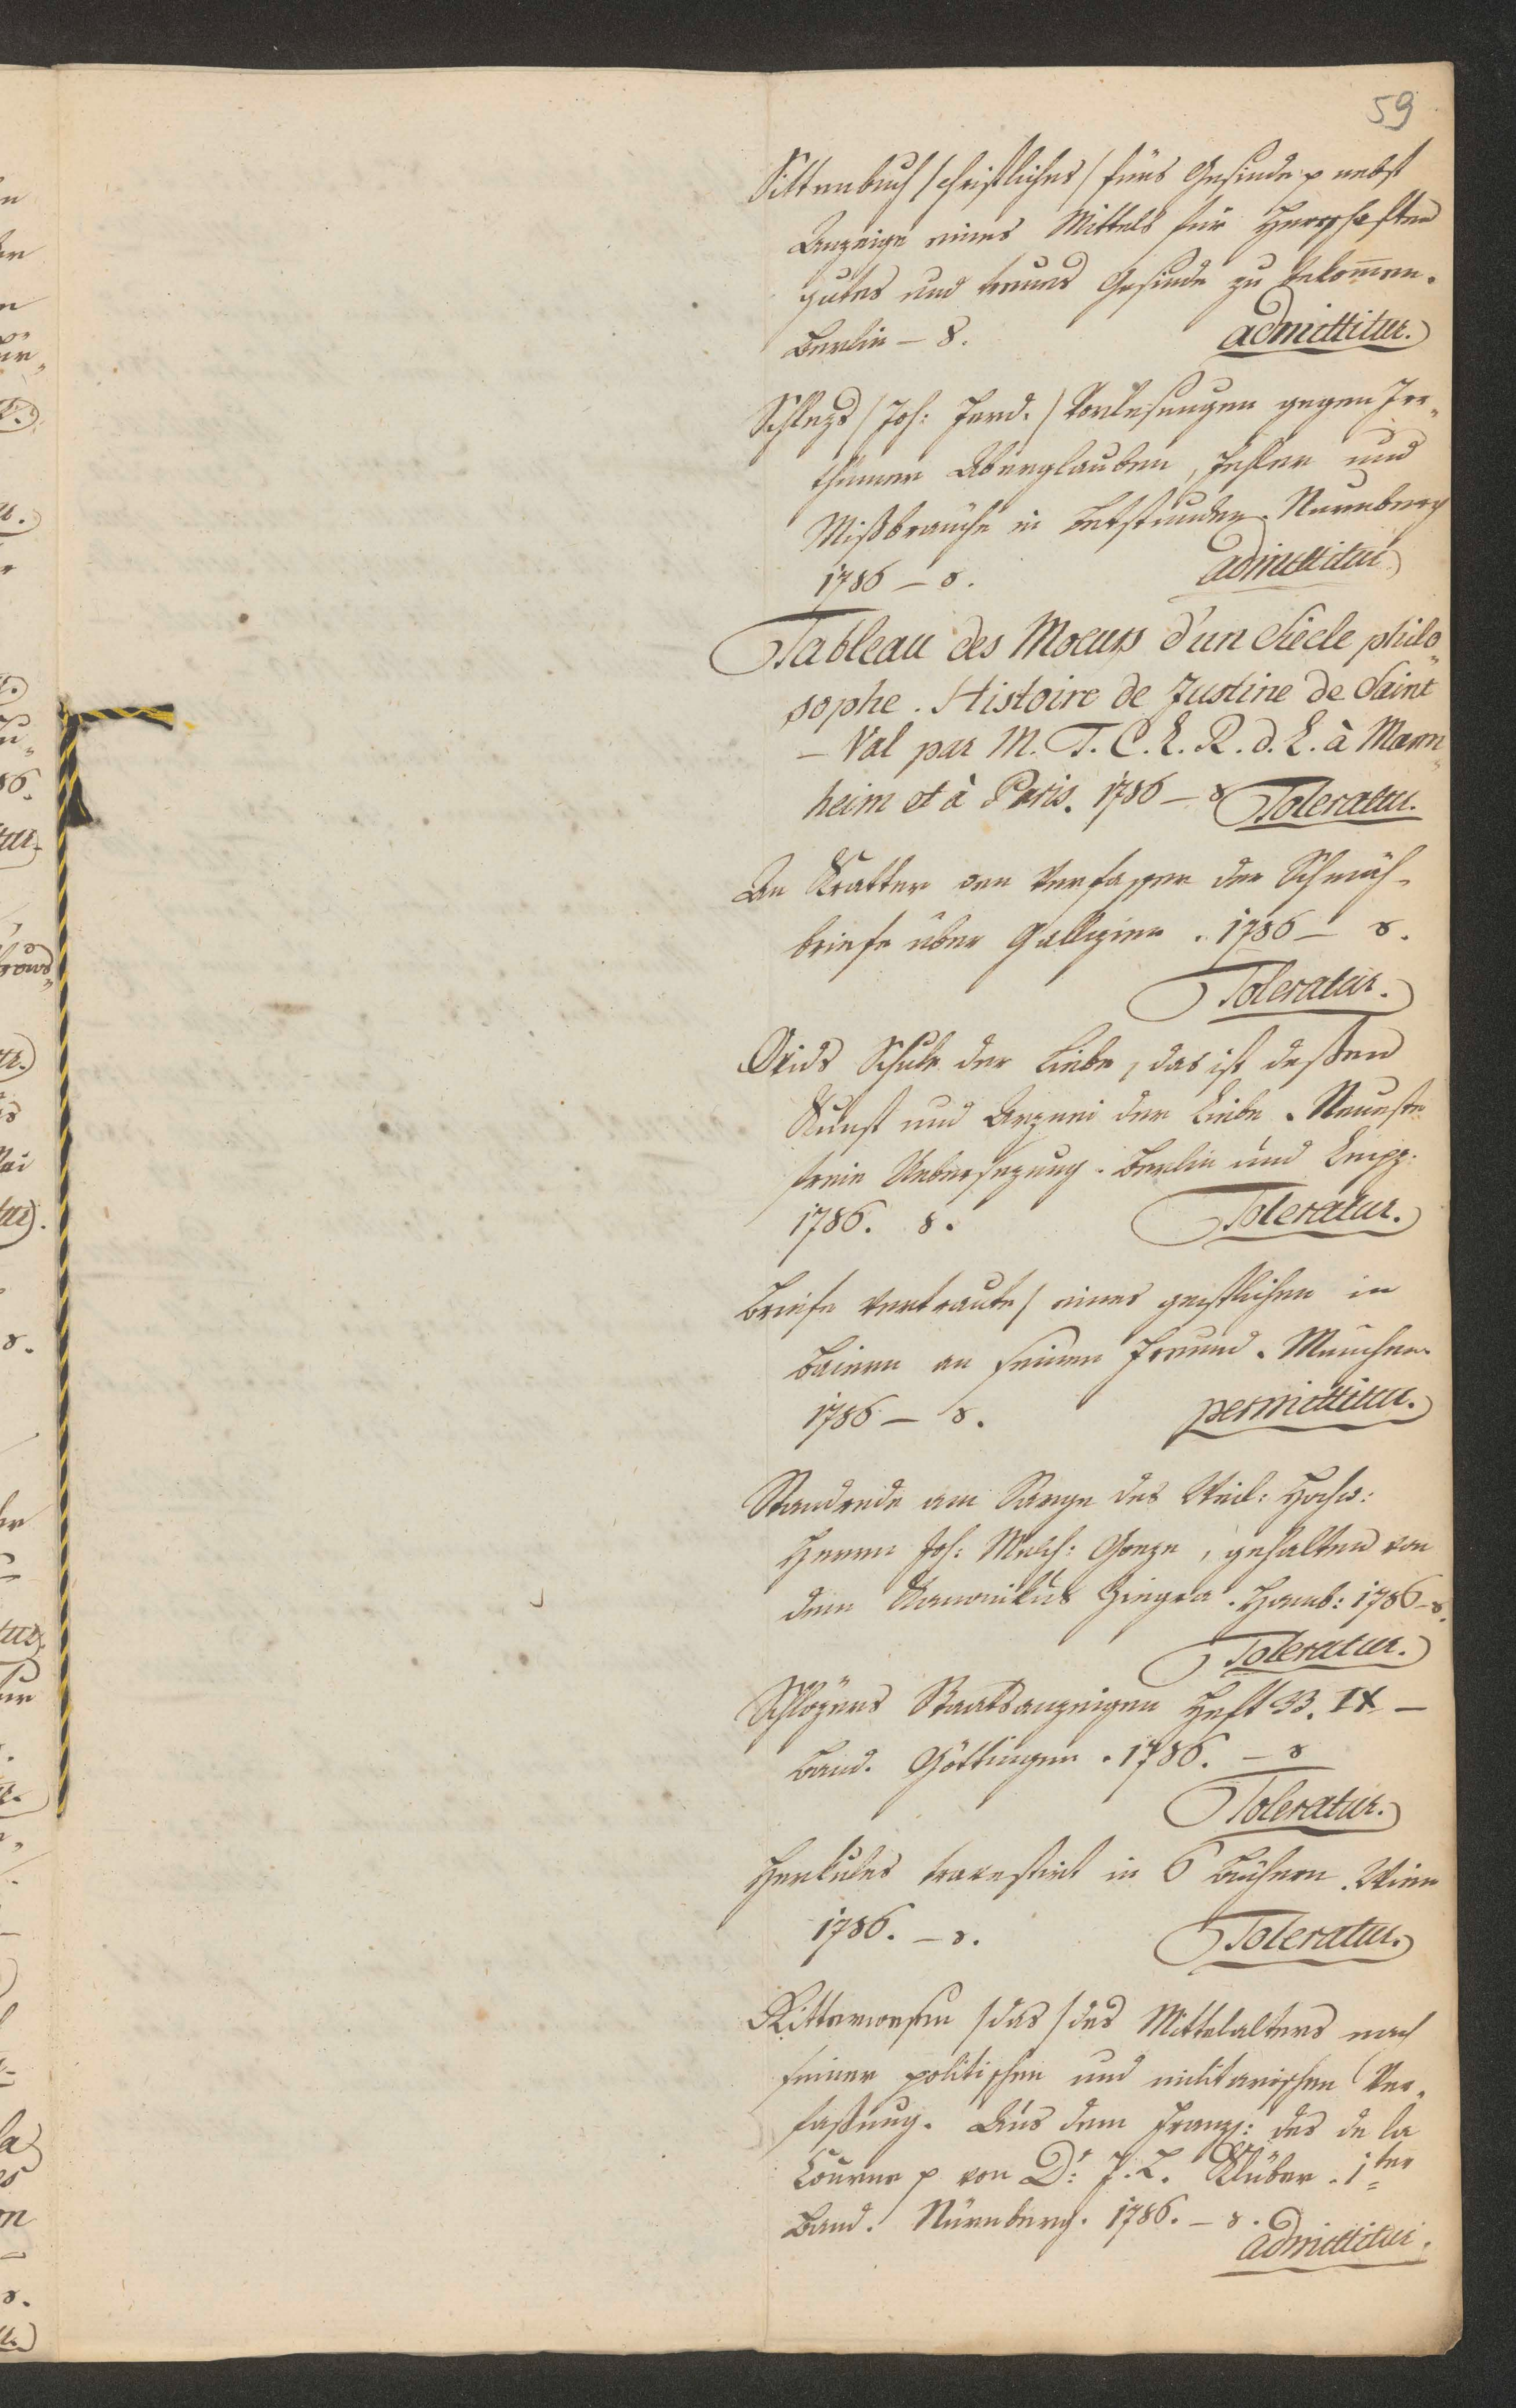 59
Sittenbuch /christliches/ fürs Gesinde p nebst
Anzeige eines Mittels für Herrschaften
gutes und treues Gesinde zu bekom̅en.
Berlin – 8. admittitur.
Schlezs /Joh: Ferd./ Vorlesungen gegen Irr„
thümer Aberglauben, Fehler und
Mißbräuche in Betstunden. Nürnberg
1786 – 8. admittitur
Tableau des Moeurs d'un Siècle philo„
sophe. Histoire de Justine de Saint
– Val par M. T. C. L. R. d. L. à Mann„
heim et à Paris. 1786 – 8 Toleratur.
An Kratter den Verfasser der Schmäh-
briefe über Gallizien. 1786 – 8.
Toleratur.
Ovids Schule der Liebe, das ist deßen
Kunst und Arznei der Liebe. Neueste
freie Uebersezung. Berlin und Leipz:
1786. 8. Toleratur.
Briefe vertraute/ eines geistlichen in
Baiern an seinen Freund. München
1786 – 8. permittitur.
Standrede am Sarge des Weil: Hochw:
Herrn Joh: Melch: Goeze, gehalten von
dem Kanonikus Ziegra. Hamb: 1786 – 8.
Toleratur.
Schlözers Staatsanzeigen Heft 33. IX –
Band. Göttingen. 1786. – 8
Toleratur.
Herkules travestirt in 6 Büchern. Wien
1786. – 8. Toleratur.
Ritterwesen /das/ des Mittelalters nach
seiner politischen und militärischen Ver„
faßung. Aus dem Franz: des de la
Courne p von Dr: J. L. Klüber. 1ter
Band. Nürnberg. 1786. – 8.
admittitur.